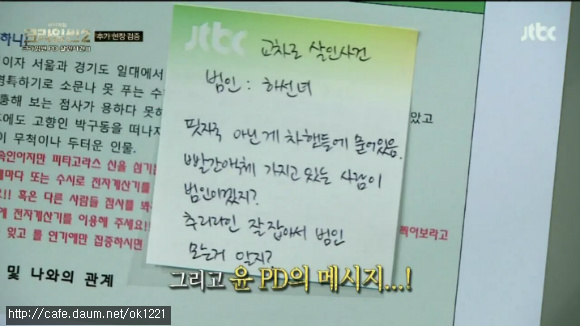 크라임씬2
추가 현장 검증
jtbc
jtbc
교차로 살인사건
범인 : 하선녀
핏자국 아닌게 차 핸들에 묻어있음.
빨간액체 가지고 있는 사람이
범인이겠지?
추리라인 잘 잡아서 범인
모는거 알지?
하니
이자 서울과 경기도 일대에서
명특하기로 소문나 못 푸는 수
통해 보는 점사가 용하다 못해
에도 고향인 박구동을 떠나지
이 무척이나 두터운 인물.
았고
속인이지만 피타고라스 신을 섬기
때마다 또는 수시로 전자계산기를
!! 혹은 다른 사람들 점사를 봐
에 전자계산기를 이용해 주세요!!
찍어보라고
잊고 롤 연기에만 집중하시면
및 나와의 관계
그리고 윤 PD의 메시지...!
http://cafe.daum.net/ok1221